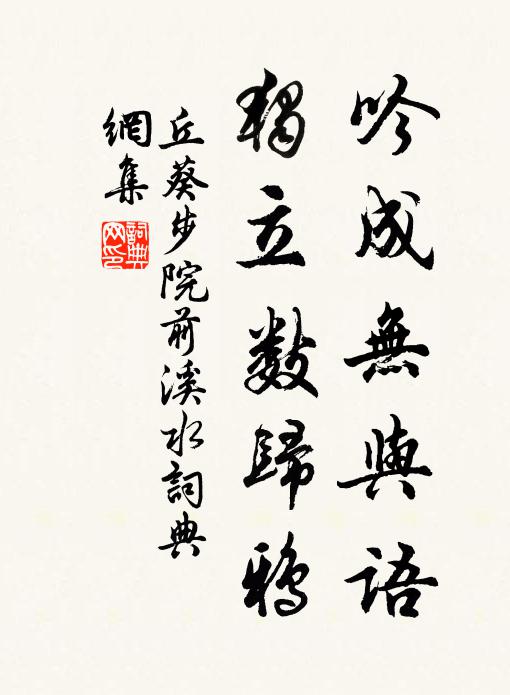 吟成無與語
獨立數歸鴉
丘葵步院前溪水詞典
網集
詞典
网印